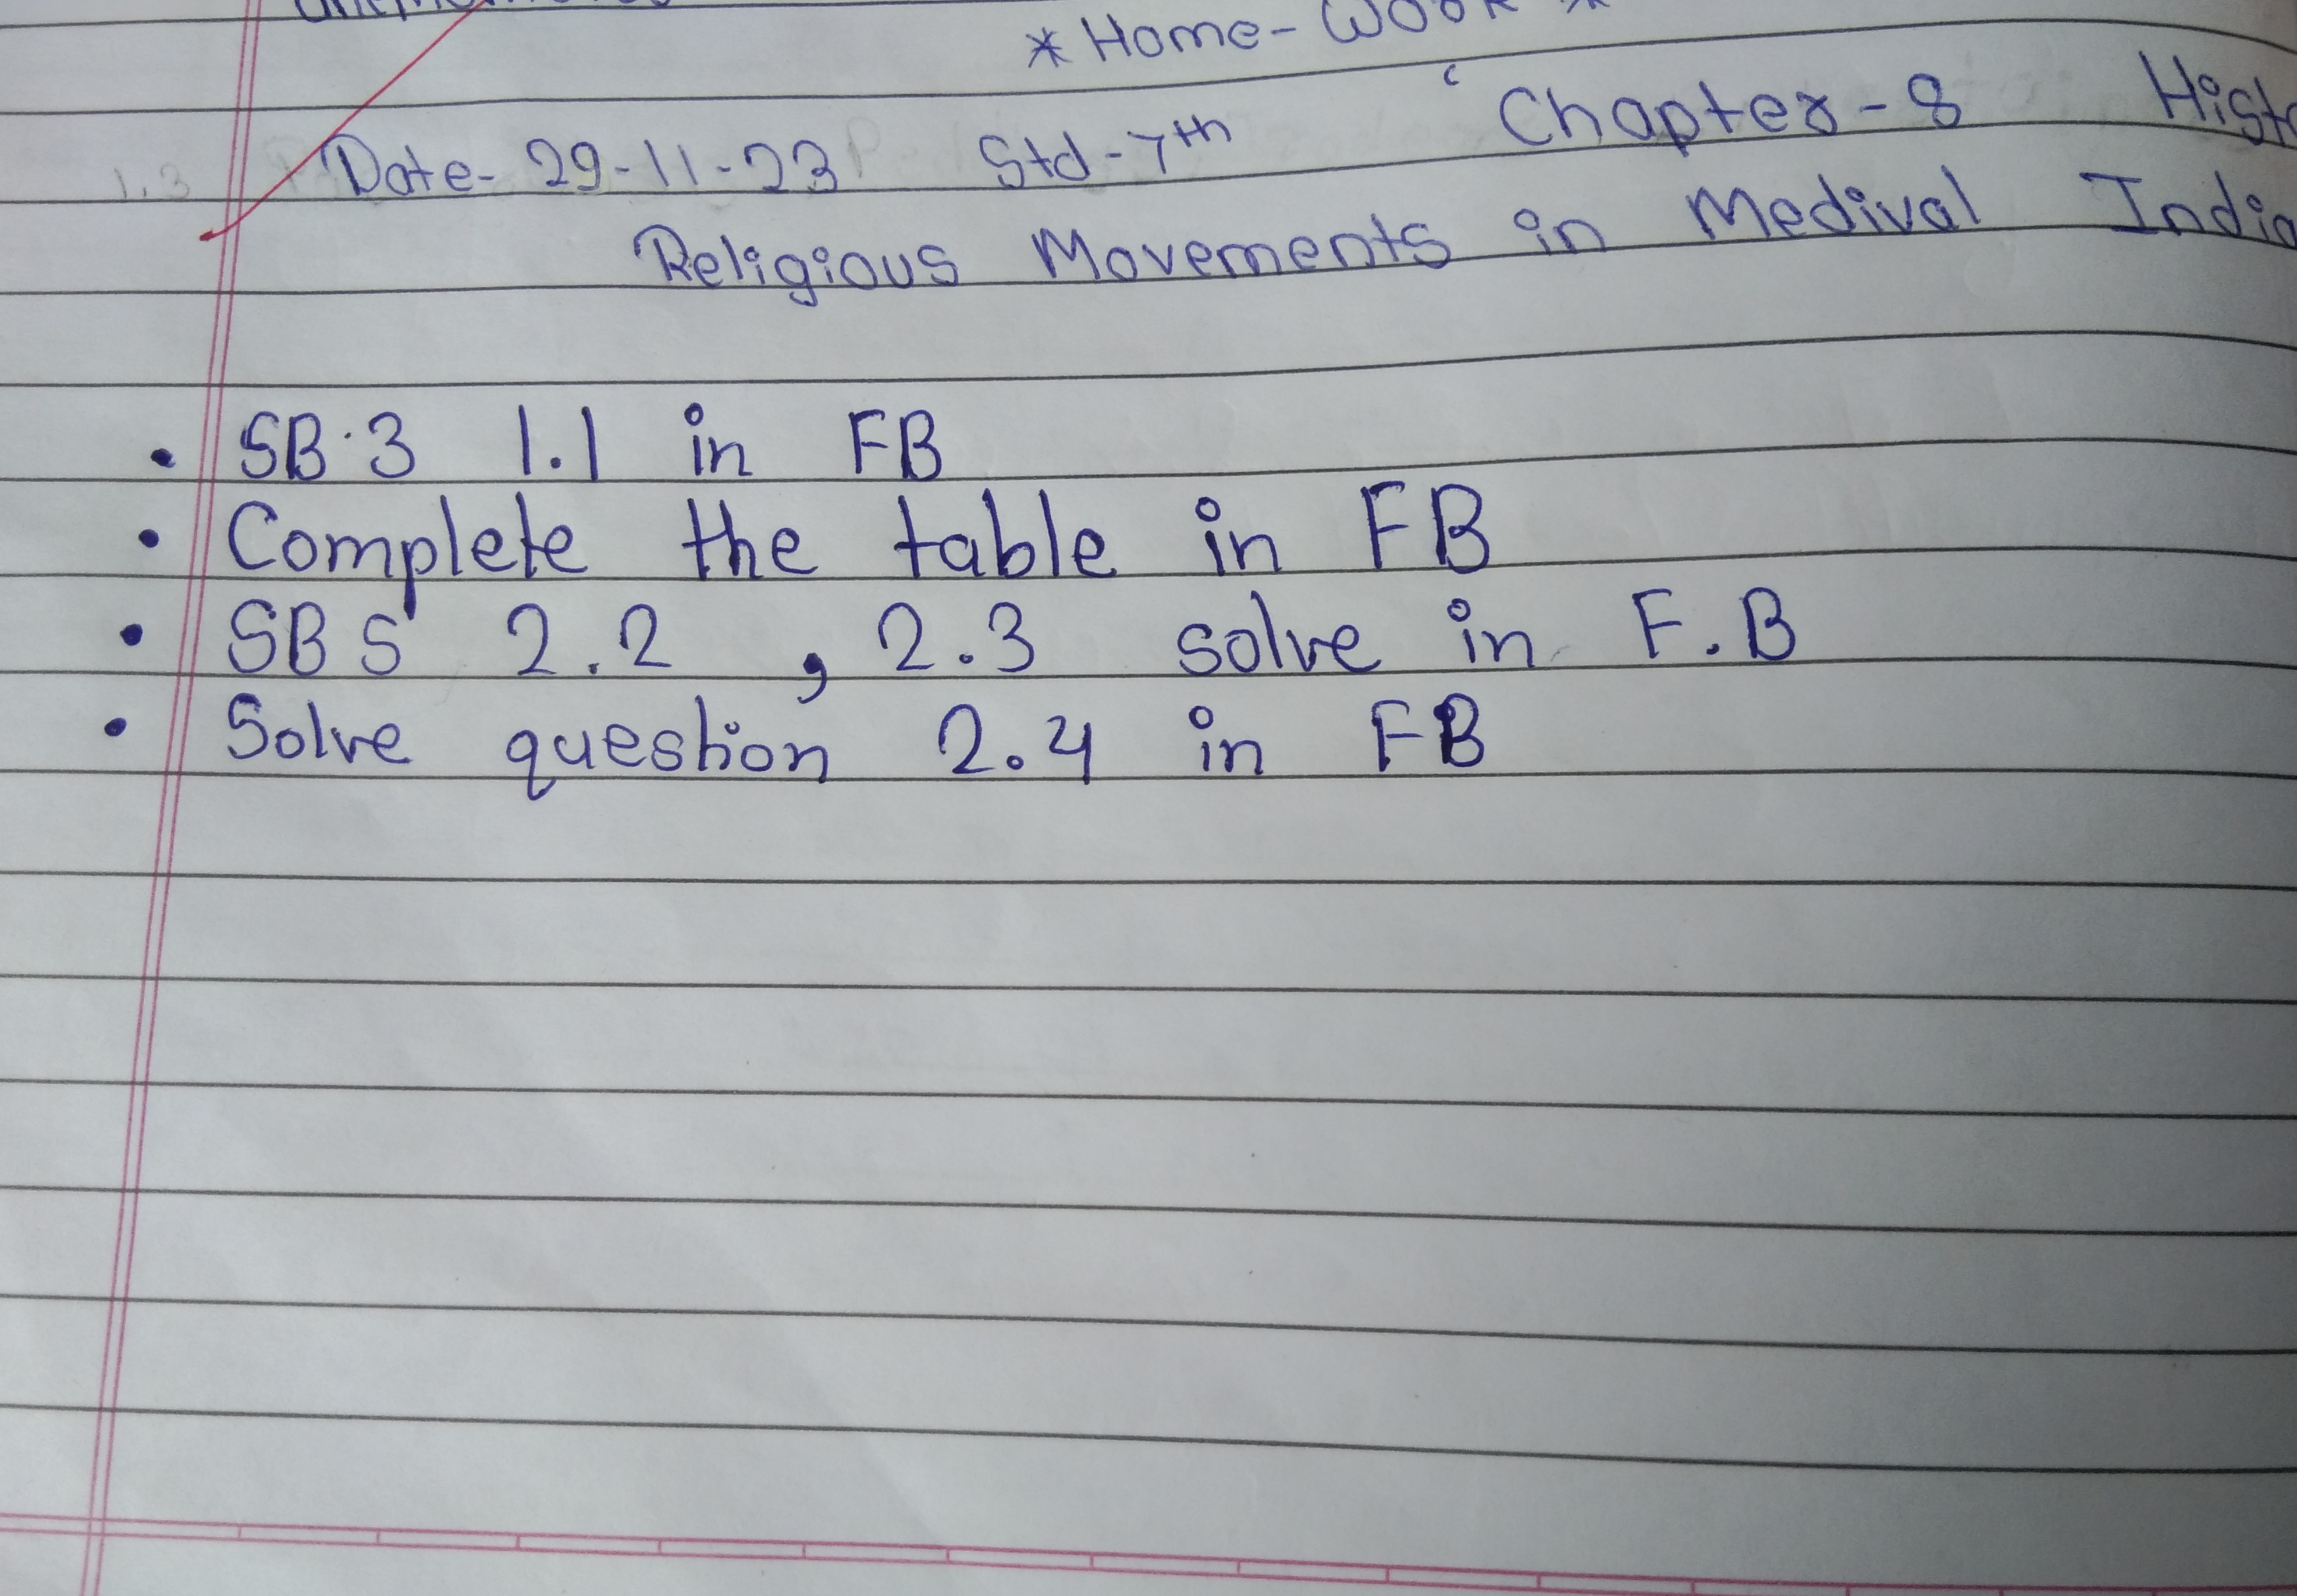 * Home-Wook *
Date- 29-11-23 Std-7th ‘Chapter-8 Histo
Religious Movements in Medival India
• SB·3 1.1 in FB
• Complete the table in FB
• SB 5 2.2 , 2.3 solve in F.B
• Solve question 2.4 in FB